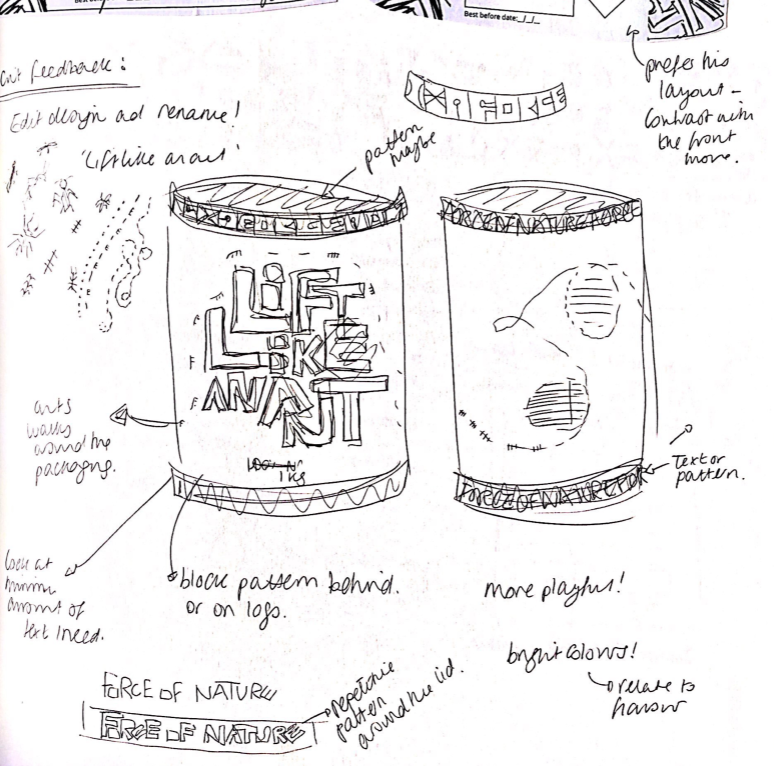 Best before date:_/_/_
crit feedback:
Edit design and rename!
'Lift like an ant'
prefer this
layout -
contrast with
the front
more.
pattern
maybe
LiFT
LiKE
AN ANT
1KG
FORCE OF NATURE FORCE
FORCE OF NATURE FOR
ants
walking
around the
packaging.
Text or
pattern.
look at
minimum
amount of
text I need.
block pattern behind.
or on logo.
more playful!
bright colours!
relate to
flavour
FORCE OF NATURE
FORCE OF NATURE
repetitive
pattern
around the lid.